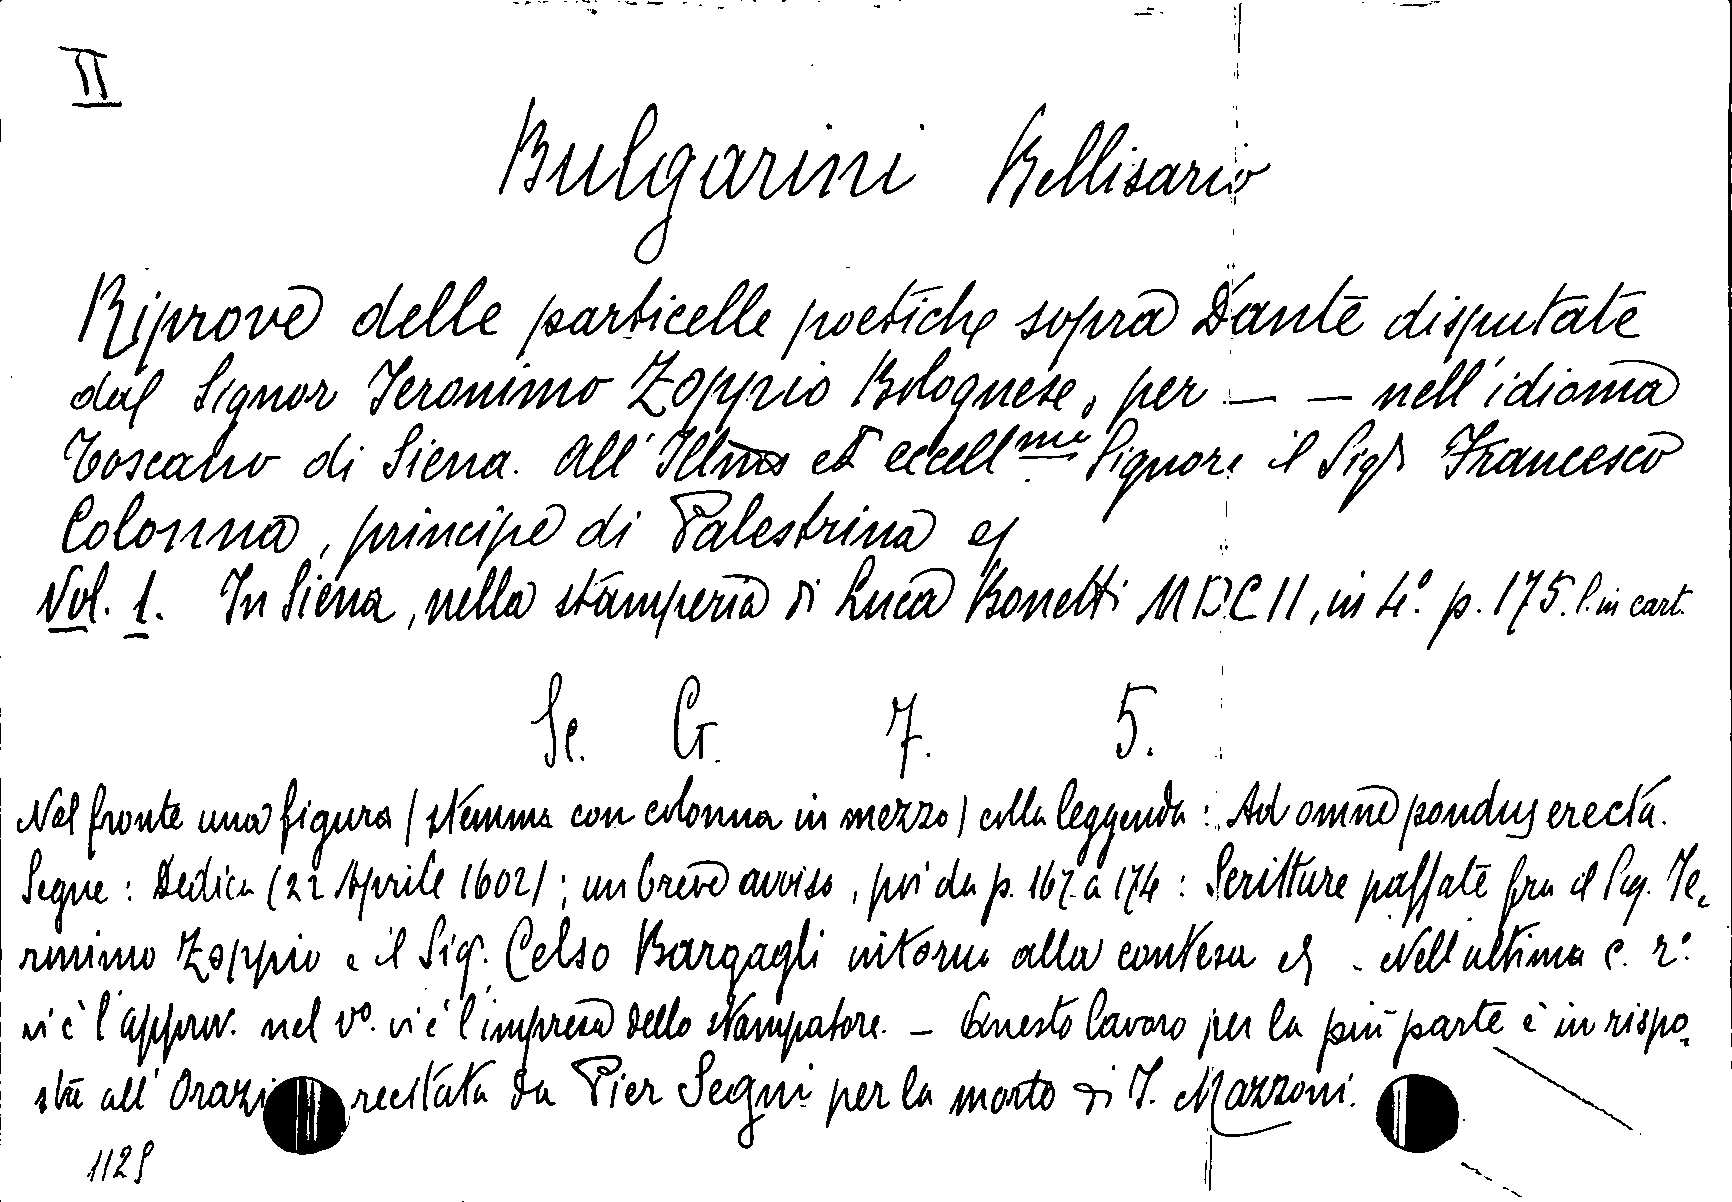 II
Bulgarini Bellisario
Riprove delle particelle poetiche sopra Dante disputate
dal Signor Jeronimo Zoppio Bolognese, per — — nell'idioma
Toscano di Siena. All' Illmo et eccell.mo Signore il Sigr Francesco
Colonna, principe di Palestrina
Vol. 1. In Siena, nella stamperia di Luca Bonetti MDCII, in 4.° p. 175. l. in cart.
Se. G. 7. 5.
Nel fronte una figura (stemma con colonna in mezzo) colla leggenda: Ad omne pondus erecta.
Segue: Dedica (22 Aprile 1602); un breve avviso, poi da p. 167. a 174: Scritture passate fra il Sig. Je-
ronimo Zoppio e il Sig. Celso Bargagli intorno alla contesa - Nell'ultima c. r.°
vi è l'approv. nel v.° vi è l'impresa dello stampatore. — Questo lavoro per la più parte è in rispo-
sta all' Orazi recitata da Pier Segni per la morte di J. Mazzoni.